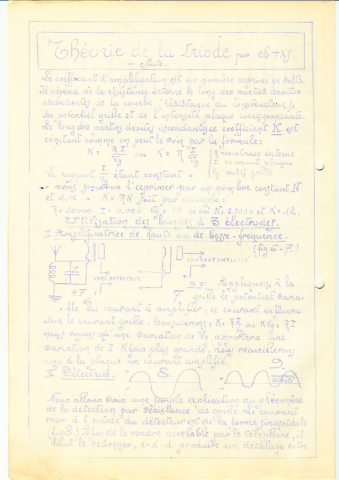 Théorie de la triode par
- suite.
Le coefficient d'amplification est un nombre exprimé en volts.
Il dépend de la résistance interne le long des parties droites
ascendantes de la courbe (résistance du constructeur),
du potentiel grille et de l'intensité plaque correspondante.
Le long des parties droites ascendantes ce coefficient K est
constant comme on peut le voir par la formule:
K = RI/Vg ou K = R I/Vg
R résistance interne
I courant plaque
Vg volts grille
Le rapport I/Vg étant constant
nous pouvons l'exprimer par un nombre constant N
et dire K = RN Soit par exemple:
Utilisation des lampes à 3 électrodes.
I Amplificatrice de haute ou de basse-fréquence.
(fig 6 - 7)
VERS DETECTEUR
COURANT AMPLIFIÉ
6
B.F.
7
Appliquons à la
grille le potentiel varia-
ble du courant à amplifier, ce courant
le courant grille. Considérons: K = RI/Vg ou KVg = RI
nous voyons qu'une variation de Vg apportera une
variation de I K fois plus grande, nous recueillerons
à la plaque un courant amplifié.
II Détectrice.
8
9
Nous allons voir une simple explication du phénomène
de la détection par résistance de grille. Le courant
reçu à l'entrée du détecteur est de la forme sinusoïdale
(fig 8) Afin de le rendre décelable par le téléphone, il
faut le redresser, c-à-d produire un décalage entre